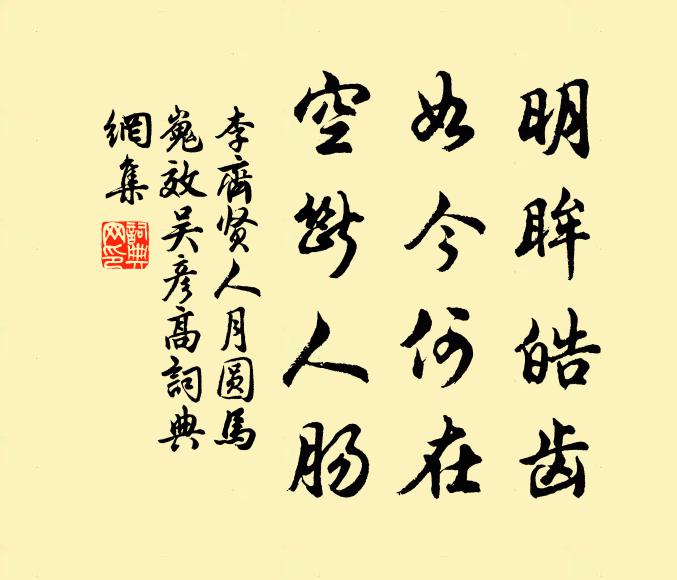 明眸皓齿
如今何在
空断人肠
李齊贤人月圆馬
嵬效吴彦高詞典
網集
詞典
网印